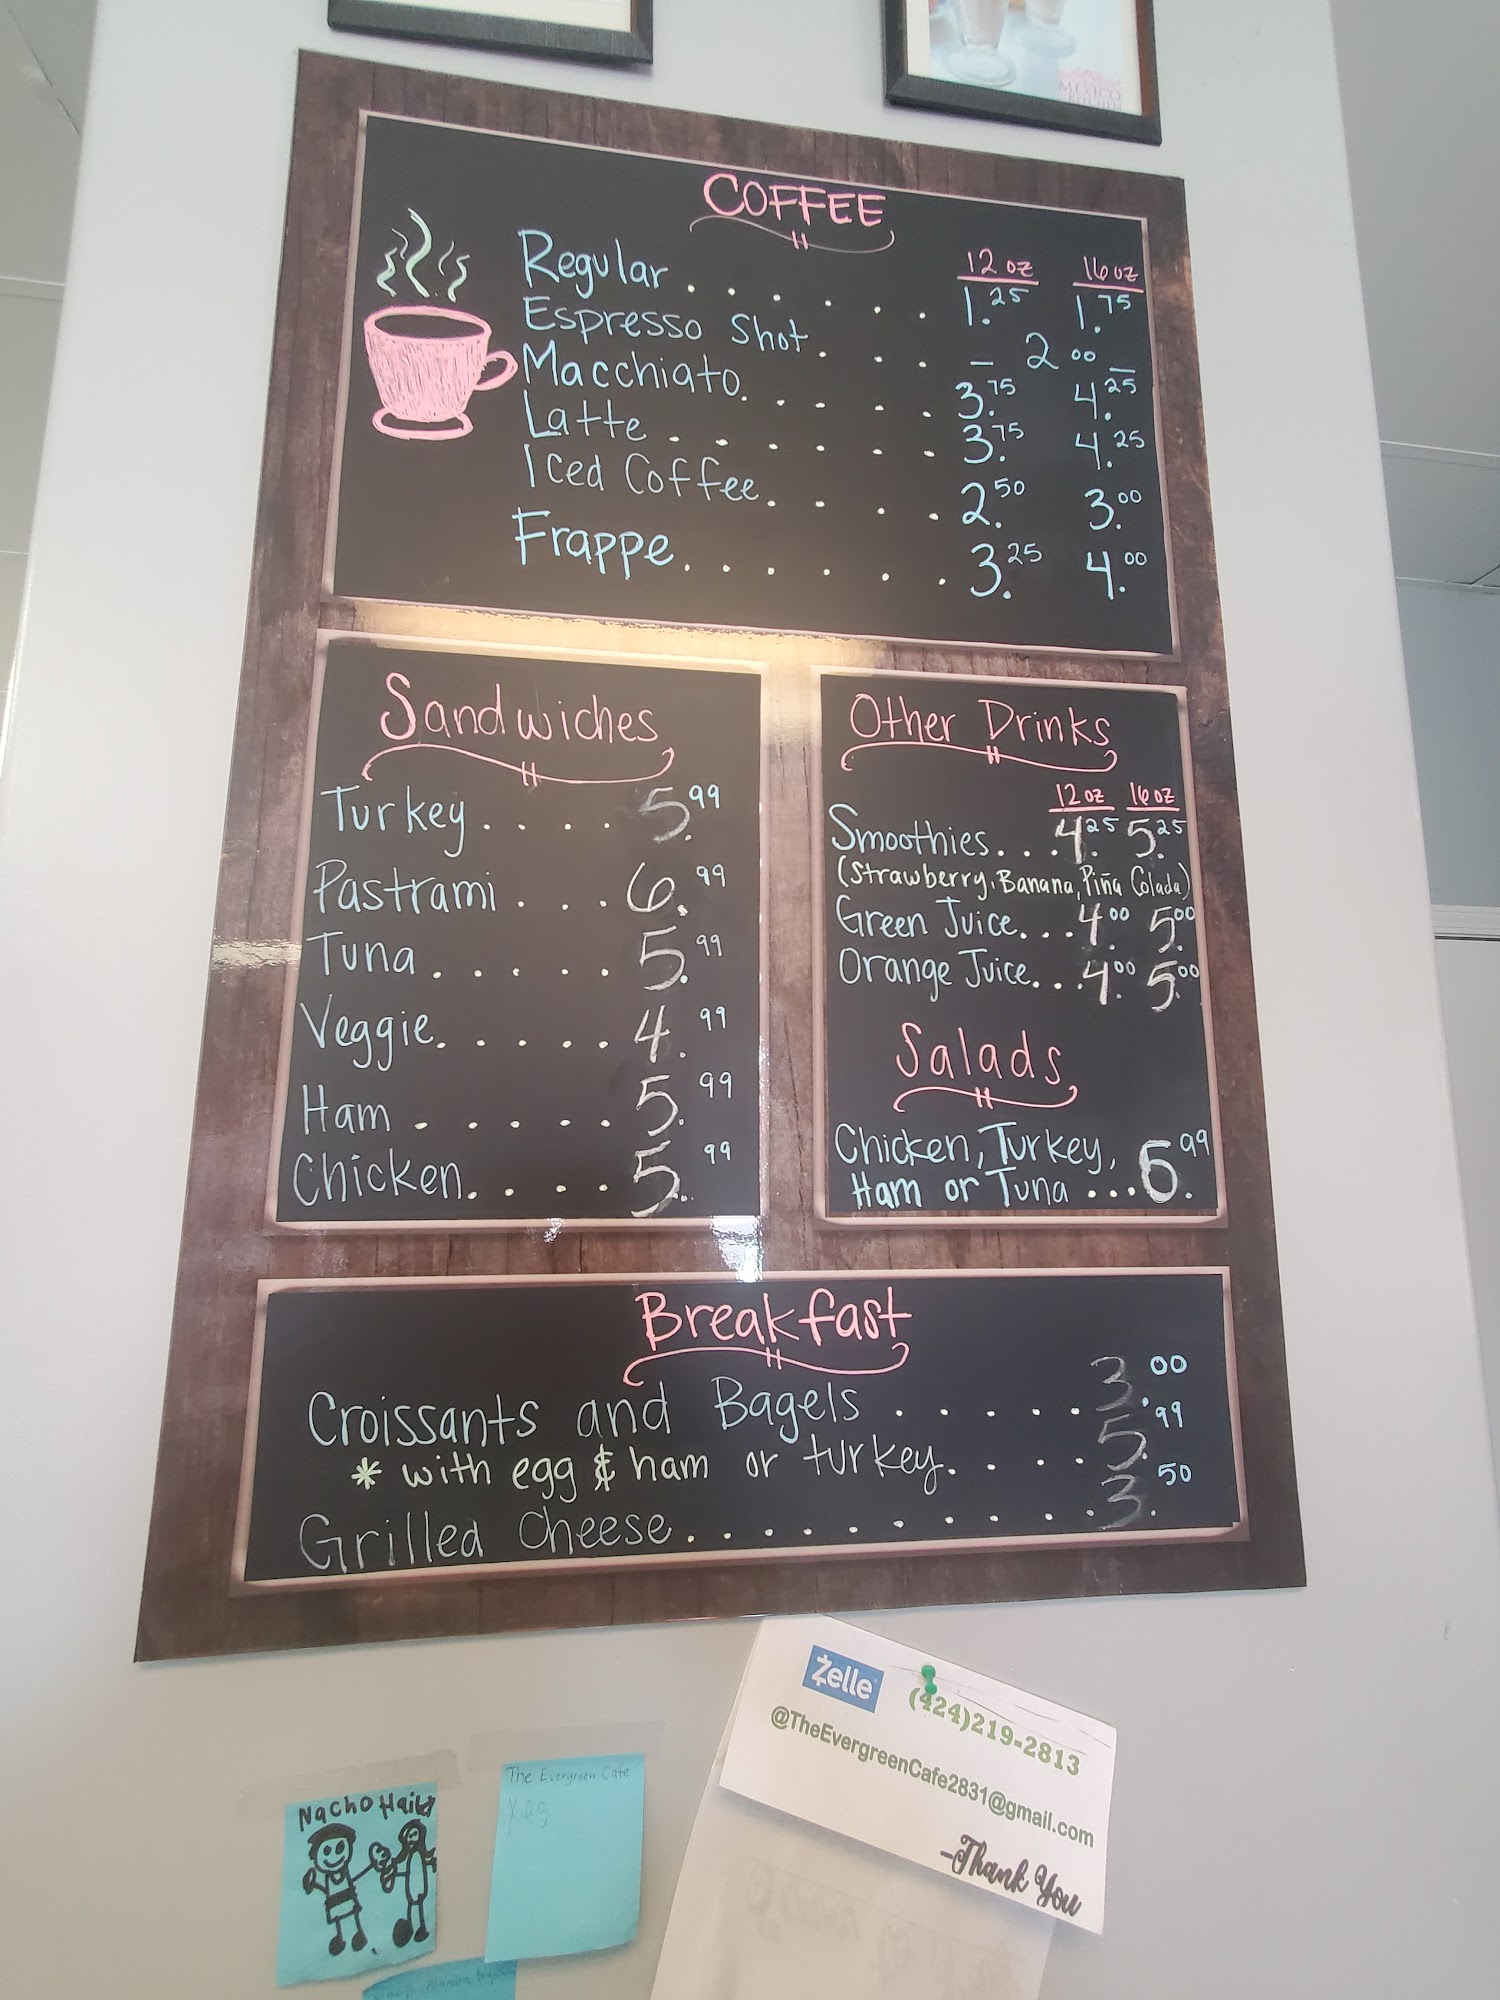 MEXICO
COFFEE
12 oz 16 oz
Regular . . . . . . 1.25 1.75
Espresso Shot . . . – 2 00 –
Macchiato. . . . . 3.75 4.25
Latte . . . . . . 3.75 4.25
Iced Coffee. . . . 2.50 3.00
Frappe. . . . . . 3.25 4.00
Sandwiches
Turkey . . . . 5.99
Pastrami . . . 6.99
Tuna . . . . . 5.99
Veggie. . . . . 4.99
Ham . . . . . 5.99
Chicken. . . . 5.99
Other Drinks
12 oz 16 oz
Smoothies. . . 4.25 5.25
(Strawberry, Banana, Piña Colada)
Green Juice. . . 4.00 5.00
Orange Juice. . . 4.00 5.00
Salads
Chicken, Turkey,
Ham or Tuna . . . 6.99
Breakfast
Croissants and Bagels . . . . . 3.00
* with egg & ham or turkey. . . . 5.99
Grilled Cheese. . . . . . . . . . 3.50
Zelle (424)219-2813
@TheEvergreenCafe2831@gmail.com
-Thank You
Nacho
The Evergreen Cafe